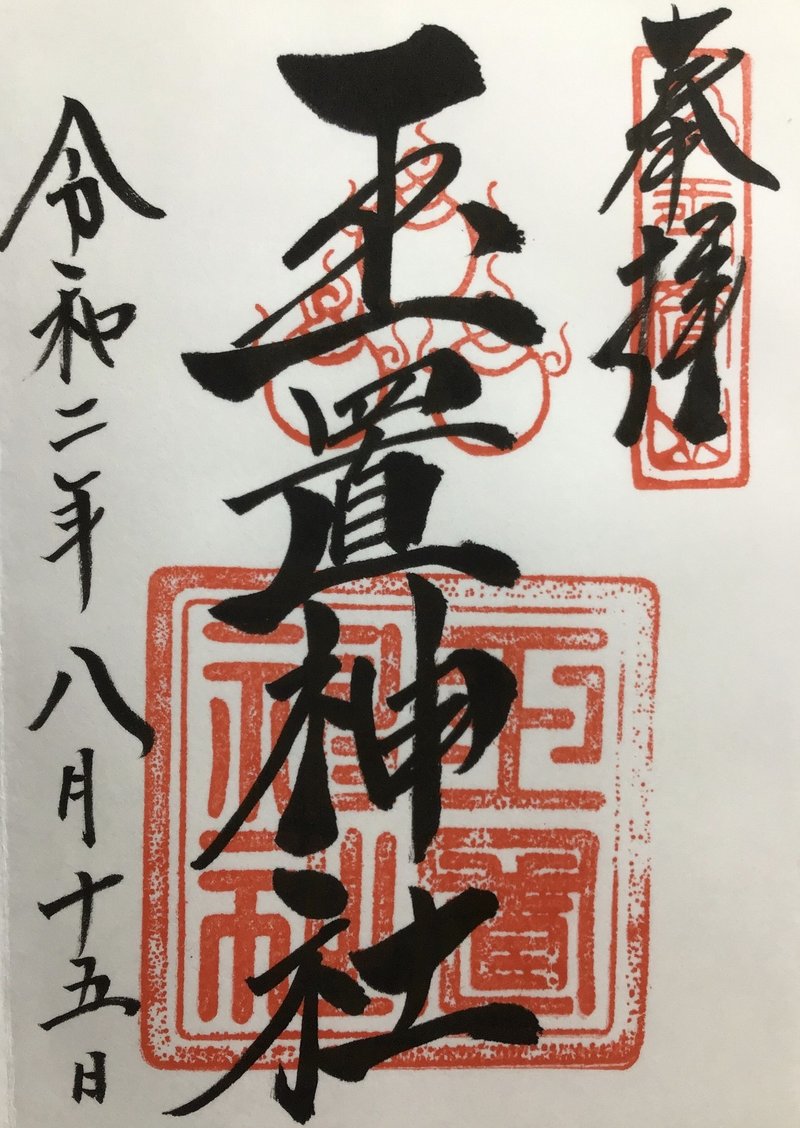 奉拝
玉置神社
令和二年八月十五日
玉置神社